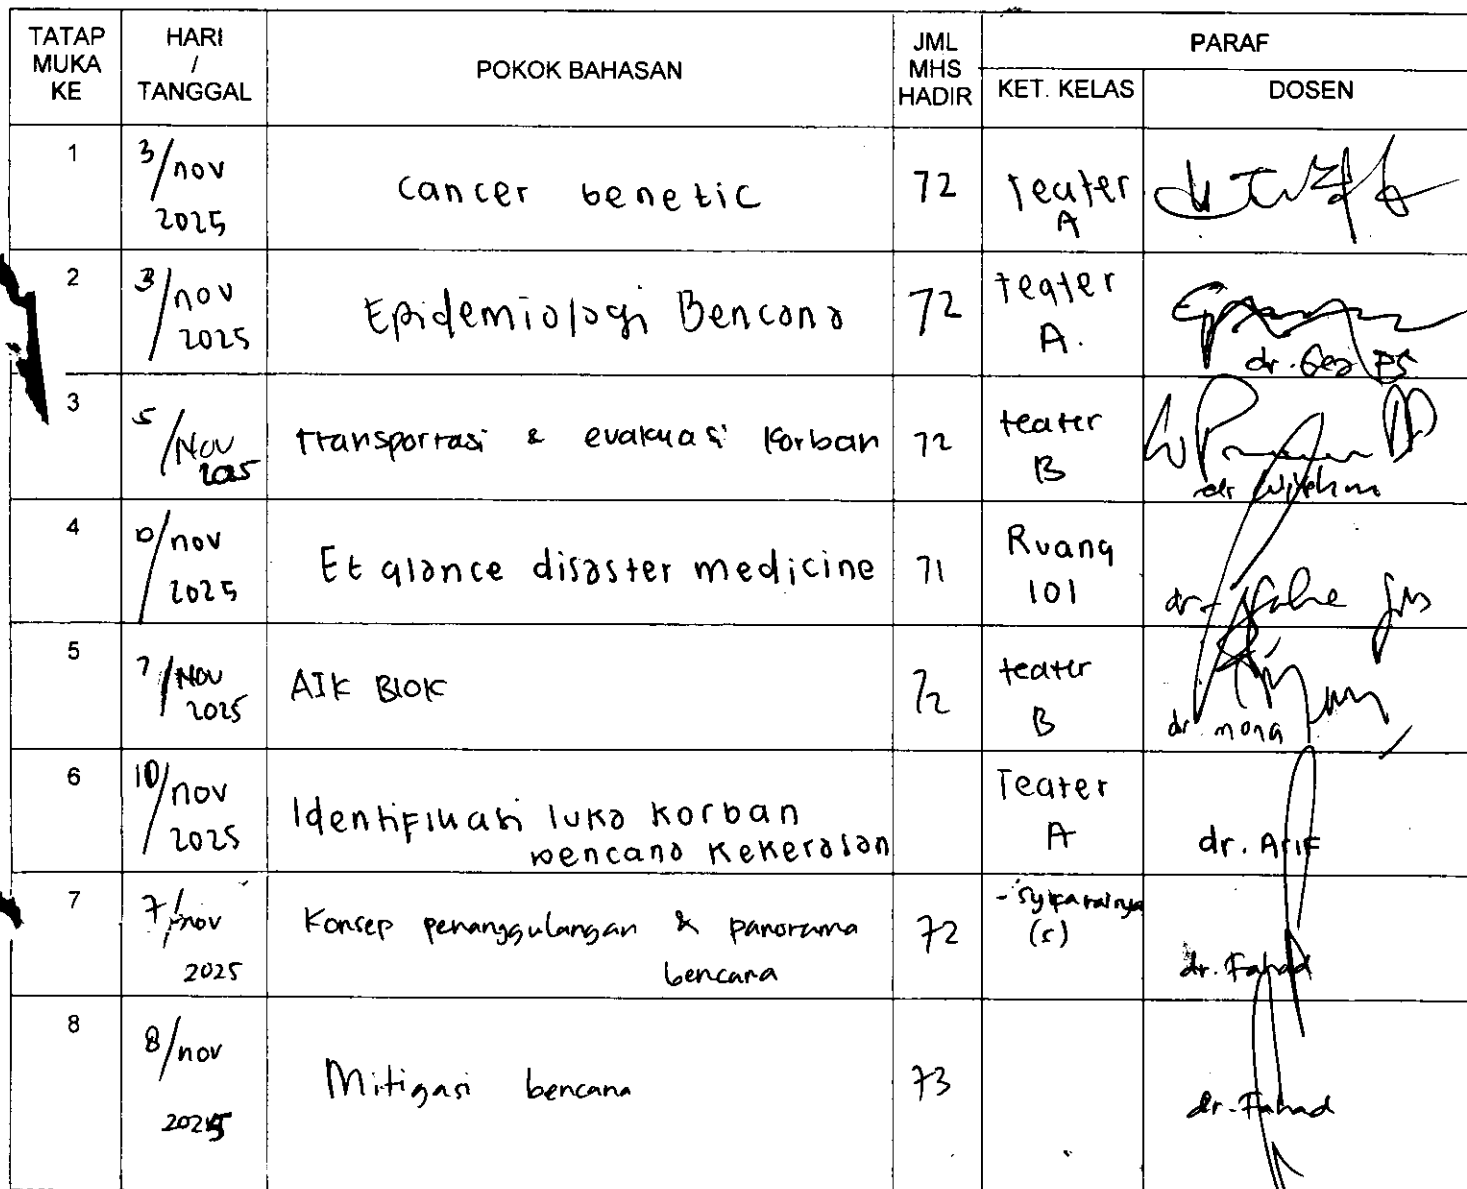 TATAP MUKA KE
HARI / TANGGAL
POKOK BAHASAN
JML MHS HADIR
PARAF
KET. KELAS
DOSEN
1
3/nov 2025
cancer benetic
72
Teater A
2
3/nov 2025
Epidemiologi Bencana
72
teater A.
dr. Gea PS
3
5/Nov 2025
transportasi & evakuasi korban
72
teater B
dr
4
nov 2025
Et glance disaster medicine
71
Ruang 101
dr.
5
7/Nov 2025
AIK BLOK
72
teater B
dr. mona
6
10/nov 2025
Identifikasi luka korban
bencana kekerasan
Teater A
dr. Arif
7
7/nov 2025
Konsep penanggulangan & panorama
bencana
72
(s)
dr. Fahad
8
8/nov 2025
Mitigasi bencana
73
dr. Fahad